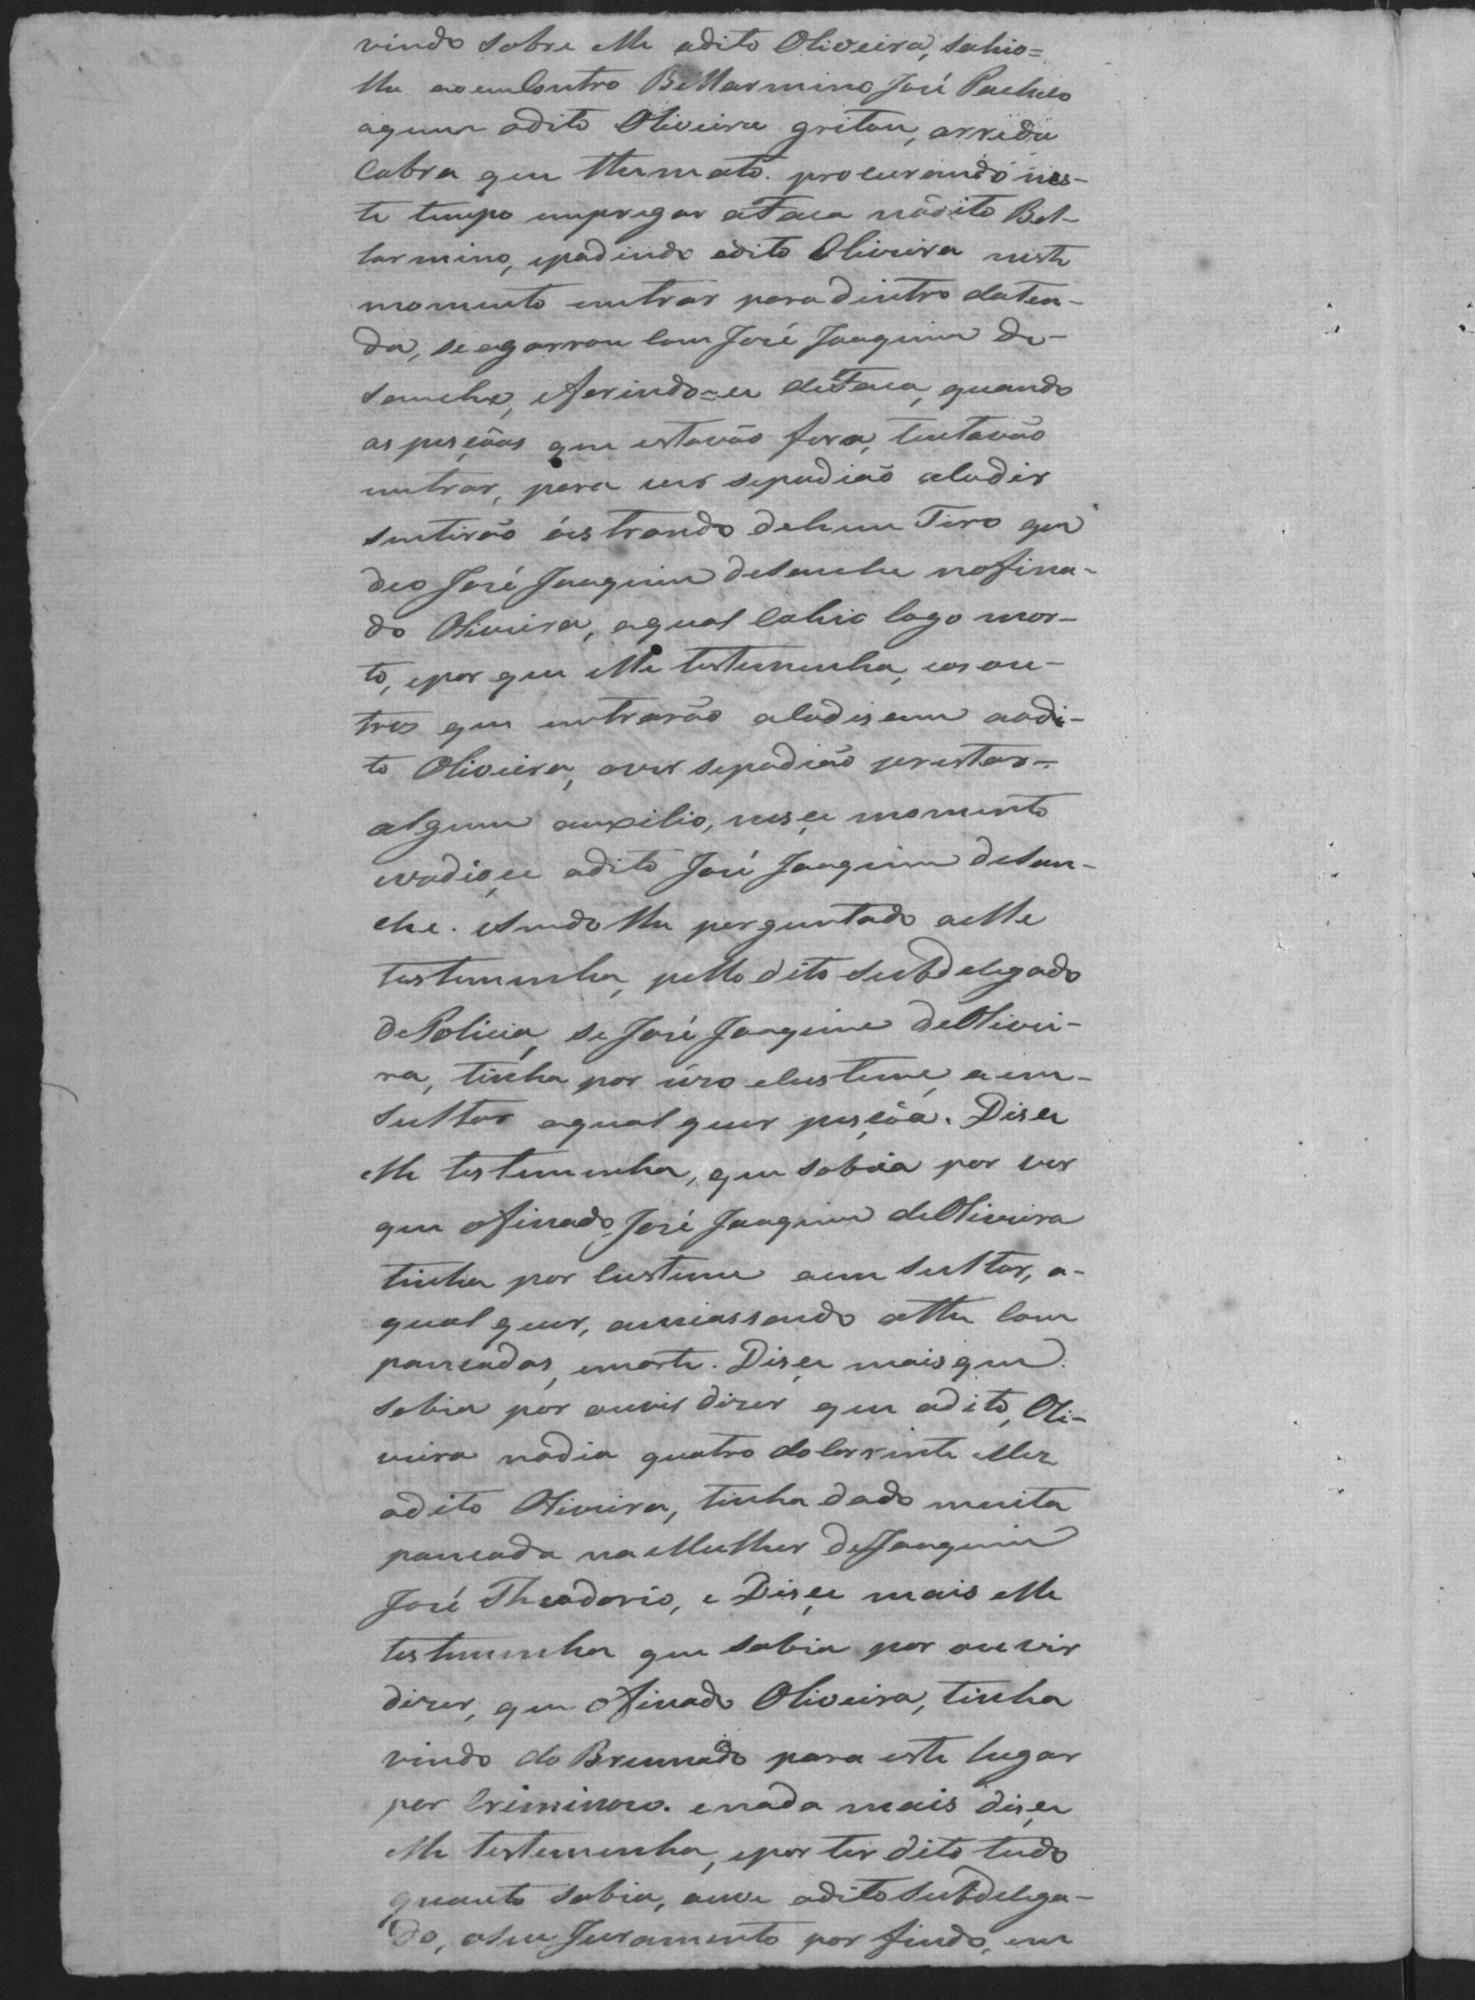 vindo sobre elle odito Oliveira, sahio=
lhe ao emContro Bellarmino José Pacheco
aquem odito Oliveira gritou, arreda
Cabra que tte mato. procurando nes-
te tempo empregar afaca nodito Bel-
larmino, epodindo odito Oliveira neste
momento entrar para dintro daten-
da, se agarrou Com José Joaquim de-
Sanche, eferindo=ce defaca, quando
as pesçôas que estavão fora, tentavão
entrar, para ver sepodião acodir
sentirão oestrondo dehum Tiro que
deo José Joaquim deSanche nofina-
do Oliveira, oqual Cahio logo mor-
to, epor que elle testemunha, eos ou-
tros que entrarão acodisem aodi-
to Oliveira, aver sepodião prestar-
algum auxilio, nesçe momento
evadioçe odito José Joaquim deSan-
che. eSendo lhe perguntado aelle
testemunha, pello dito Subdelegado
dePolicia, se José Joaquim deOlivei-
ra, tinha por uzo eCustume, aem-
sultar aqual quer pesçôa. Disçe
elle testemunha, que sabia por ver
que ofinado José Joaquim deOliveira
tinha por Custume aem sultar, a-
qual quer, amiassando athe Com
pancadas, emorte. Disçe mais que
sabia por ouvir dizer que odito, Oli-
veira nodia quatro doCorrente Mez
odito Oliveira, tinha dado muita
pancada na Mulher deJoaquim
José Theodorio, e Disçe mais elle
testemunha que sabia por ouvir
dizer, que ofinado Oliveira, tinha
vindo do Brumado para este lugar
por Criminoso. enada mais disçe
elle testemunha, epor ter dito tudo
quanto sabia, ouve odito Subdelega-
do, oseu Juramento por findo, em